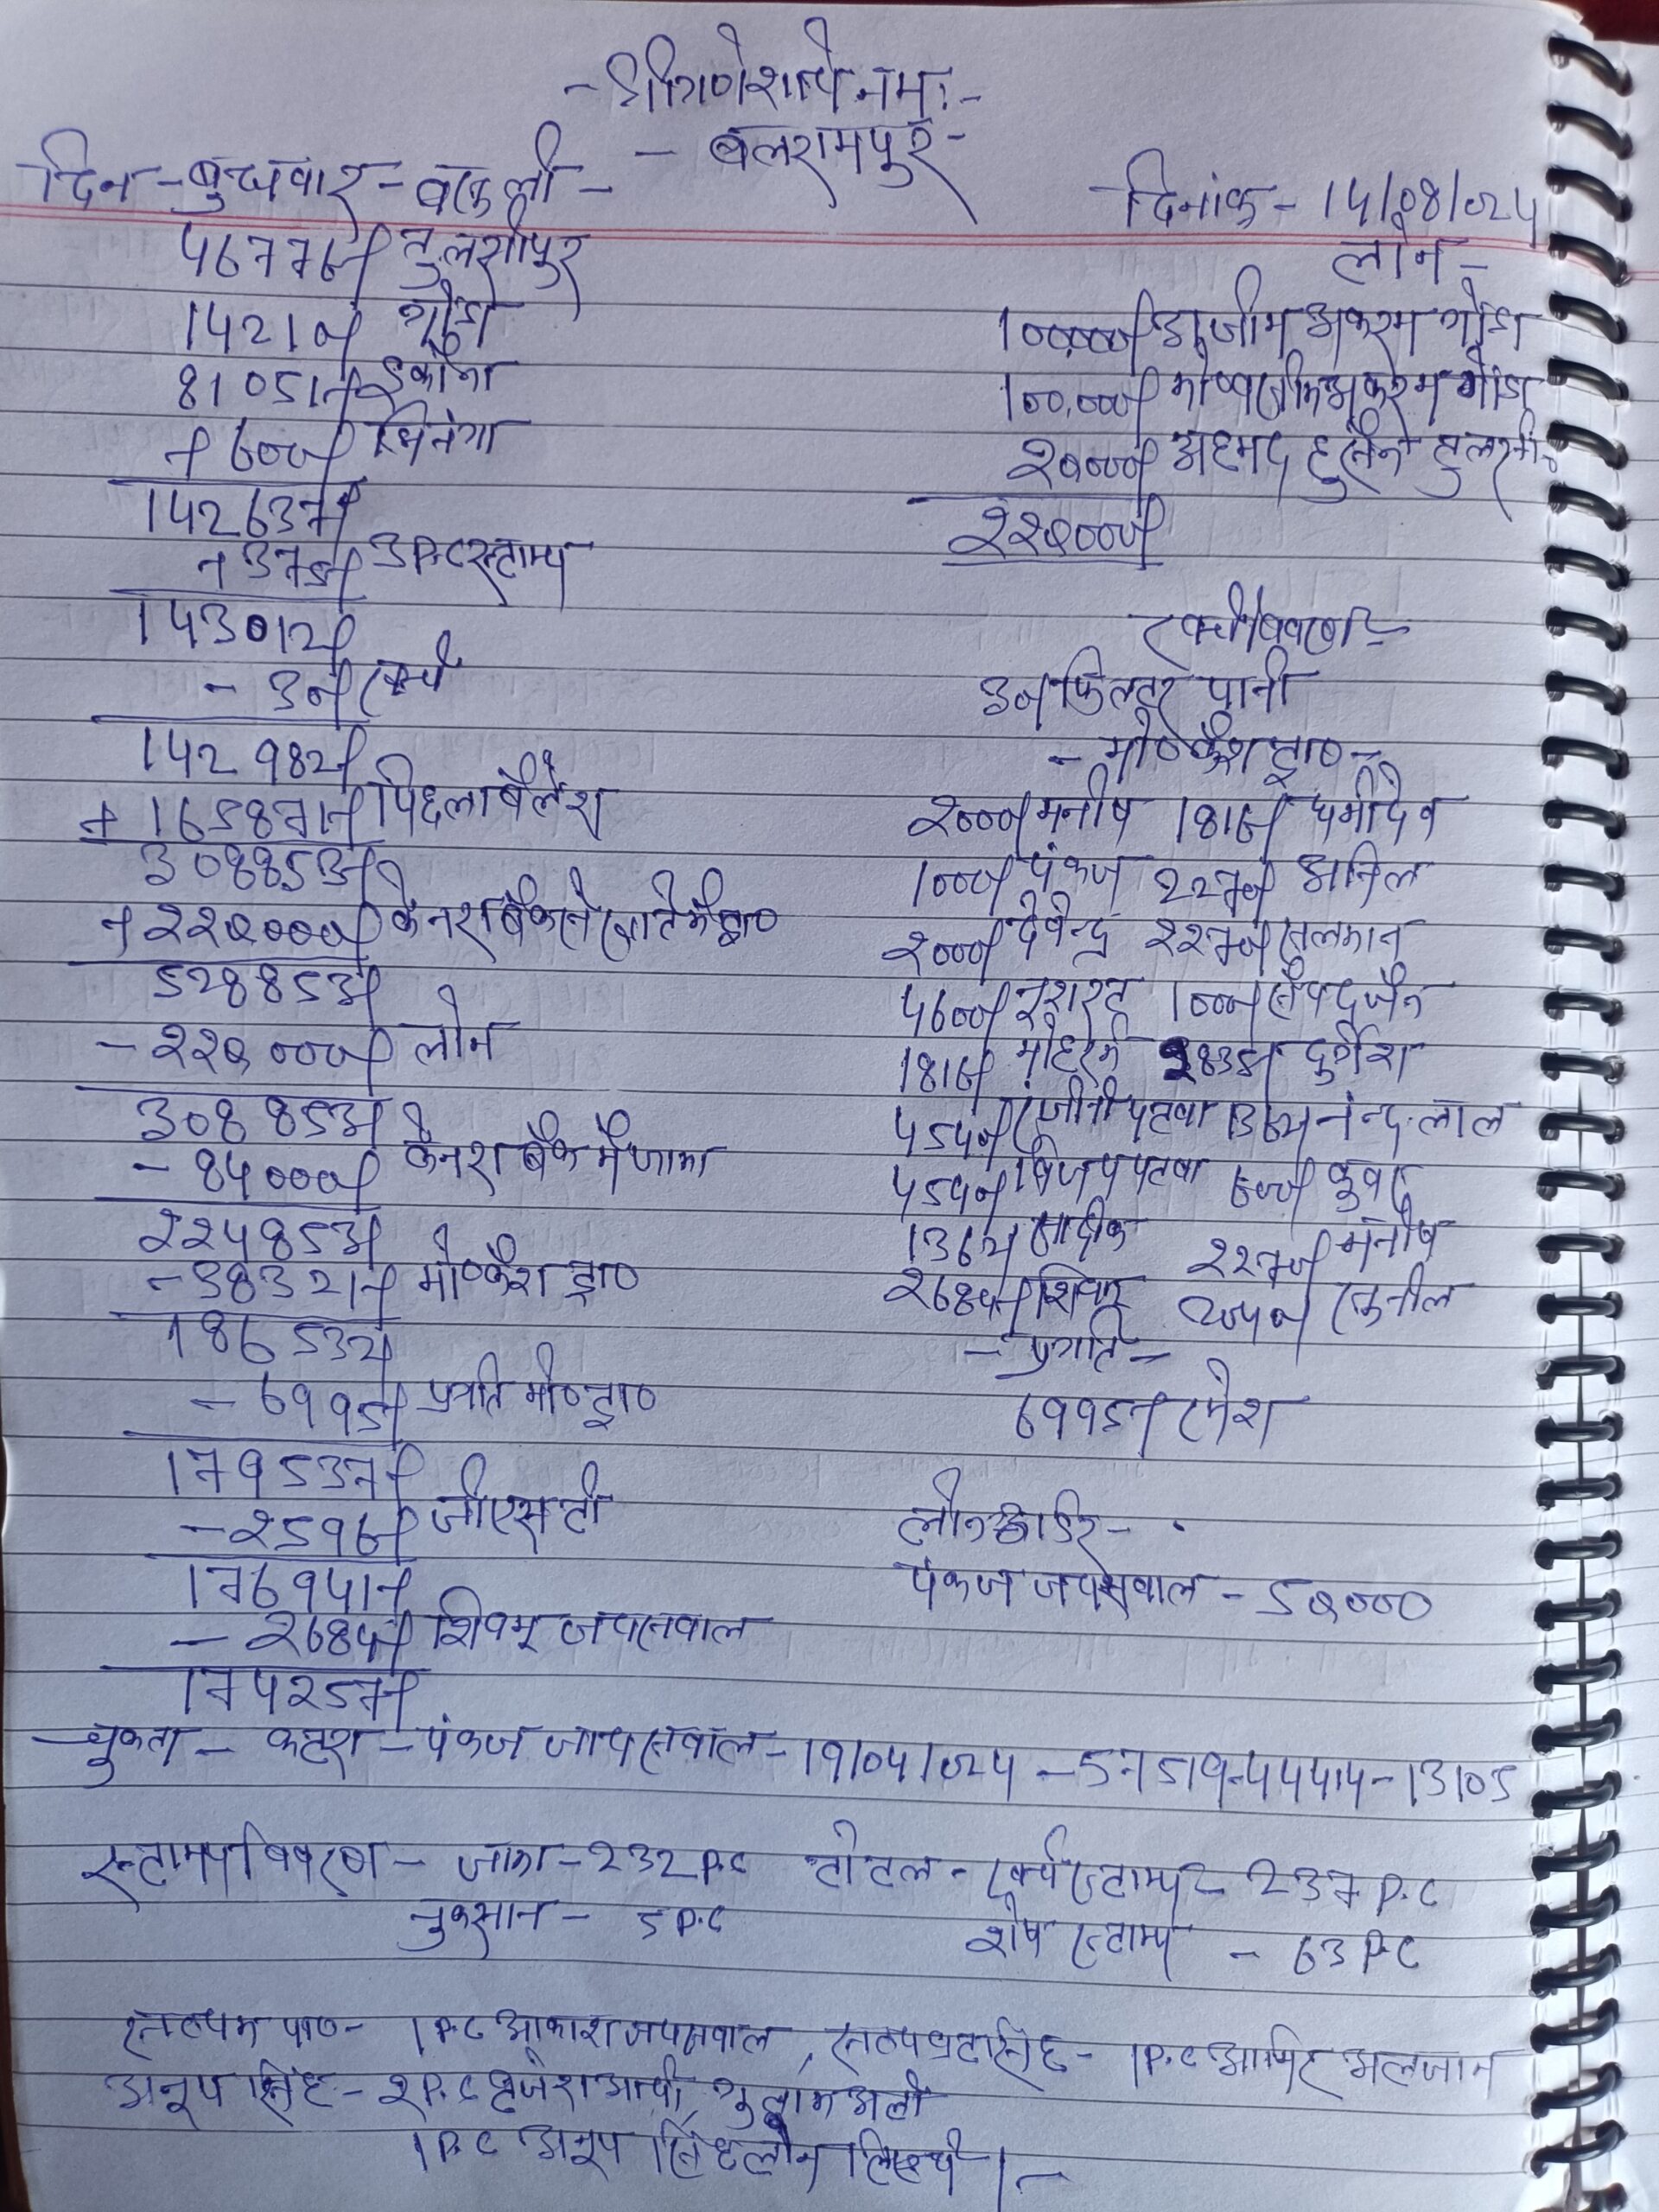 - श्री गणेशाये नमः -
- बलरामपुर -
दिन - बुधवार - वसूली -
दिनांक - 14/08/024
46776/- तुलसीपुर
14210/- गोंडा
81051/- इकौना
+ 600/- भिनगा
142637/-
+ 375/- 3 P.C स्टाम्प
143012/-
- 30/- खर्च
142982/-
+ 165871/- पिछला बैलेंश
308853/-
+ 220000/- केनरा बैंक से खाते में प्राo
528853/-
- 220000/- लोन
308853/-
- 84000/- केनरा बैंक में जमा
224853/-
- 38321/- मोo कैश ट्राo
186532/-
- 6995/- प्रगति मोo ट्राo
179537/-
- 2596/- जीएसटी
176941/-
- 2684/- शिवम् जयसवाल
174257/-
लोन -
100,000/- अजीम अकरम गोंडा
100,000/- अकरम गोंडा
20000/- अहमद हुसैन तुलसीo
220000/-
खर्च विवरण -
30/- फिल्टर पानी
- मोo कैश ट्राo -
2000/- मनीष 1816/- धर्मदेव
1000/- पंकज 2270/- अनिल
2000/- देवेन्द्र 2270/- सलमान
4600/- नुशरत 1000/- सैयद जैन
1816/- मोहर्रम 2835/- दुर्गेश
4540/- पटवा 1362/- नन्द लाल
4540/- विजय पटवा 600/-
1362/- सादीक 2270/- मनीष
2684/- शिवम् 2040/- सुनील
- प्रगति -
6995/- रमेश
लोन आर्डर -
पंकज जयसवाल - 50000
चुकता - कटरा - पंकज जायसवाल - 19/04/024 - 13105
स्टाम्प विवरण - जमा - 232 P.C टोटल - खर्च स्टाम्प - 237 P.C
नुकसान - 5 P.C शेष स्टाम्प - 63 P.C
1 P.C आकाश जयसवाल, - 1 P.C
अनूप सिंह - 2 P.C गुलाम अली
1 P.C अनूप सिंह लोन